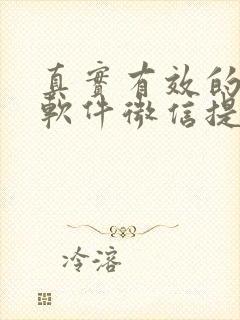 真實有效的
軟件微信提
冷溶